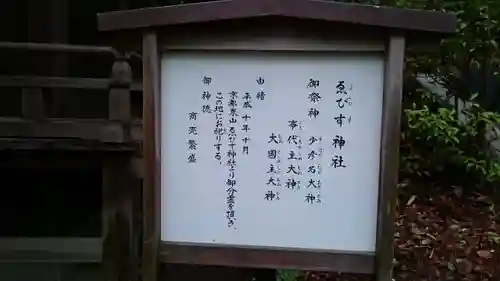 ゑびす神社
御祭神 少彦名大神
事代主大神
大國主大神
由緒
平成十年十月
京都東山ゑびす神社より御分霊を頂き、
この地にお祀りする。
御神徳
商売繁盛